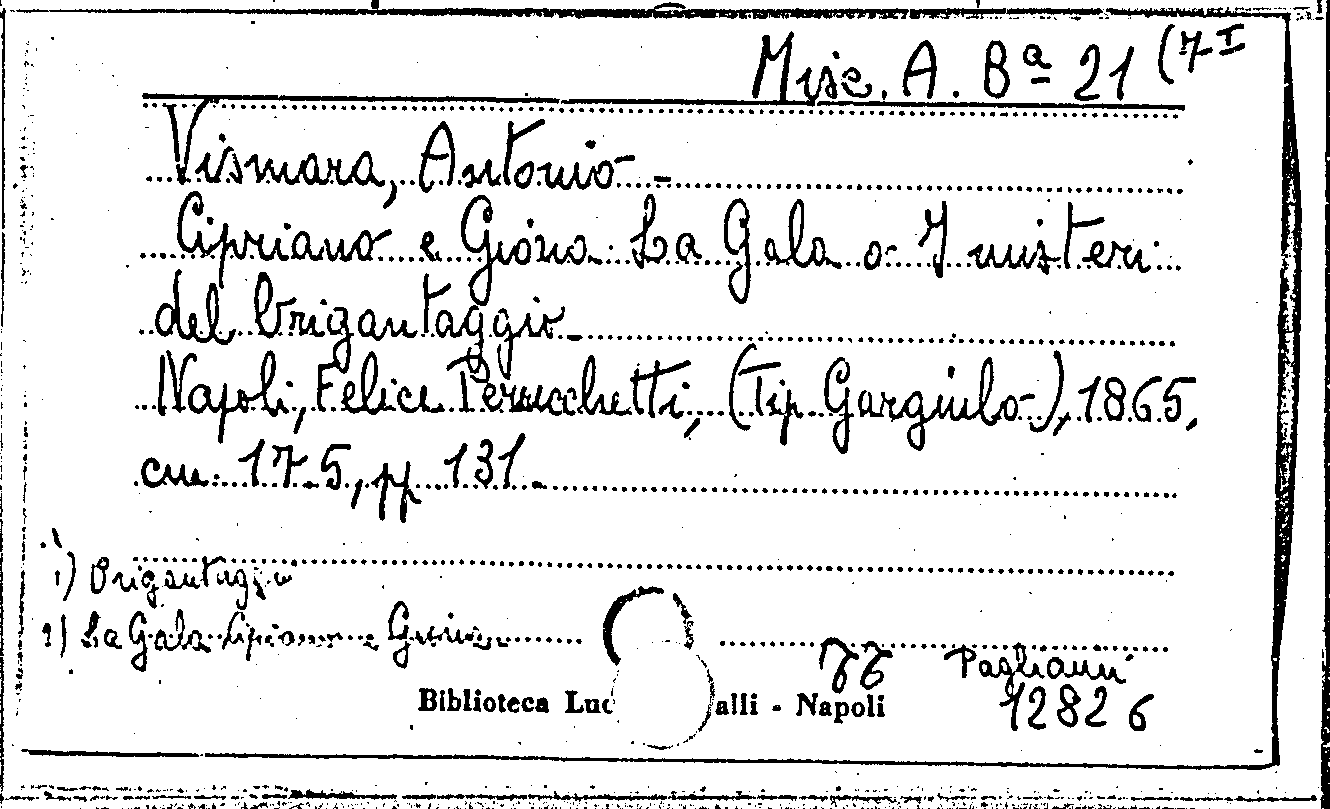 Misc. A. Bª 21 (7 I
Vismara, Antonio -
Cipriano e Giona La Gala o I misteri
del brigantaggio -
Napoli, Felice Perucchetti, (Tip Gargiulo), 1865,
cm. 17.5, pp 131 -
1) Brigantaggio
2) La Gala Cipriano e Giona
Pagliaini
Biblioteca Luc alli - Napoli
12826